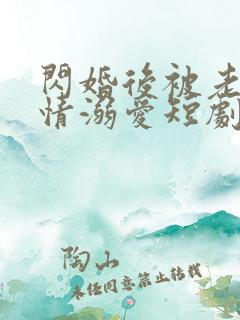 閃婚後被老
情溺愛短劇
陶山
未經同意禁止轉載